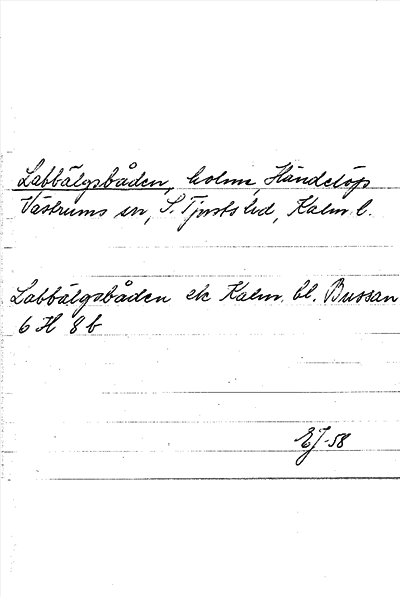 Labbälgsbåden, holme, Händelöp
Västrums sn, S. Tjusts hd, Kalm. l.
Labbälgsbåden ek Kalm. bl. Bussan
6 H 8 b
EJ-58